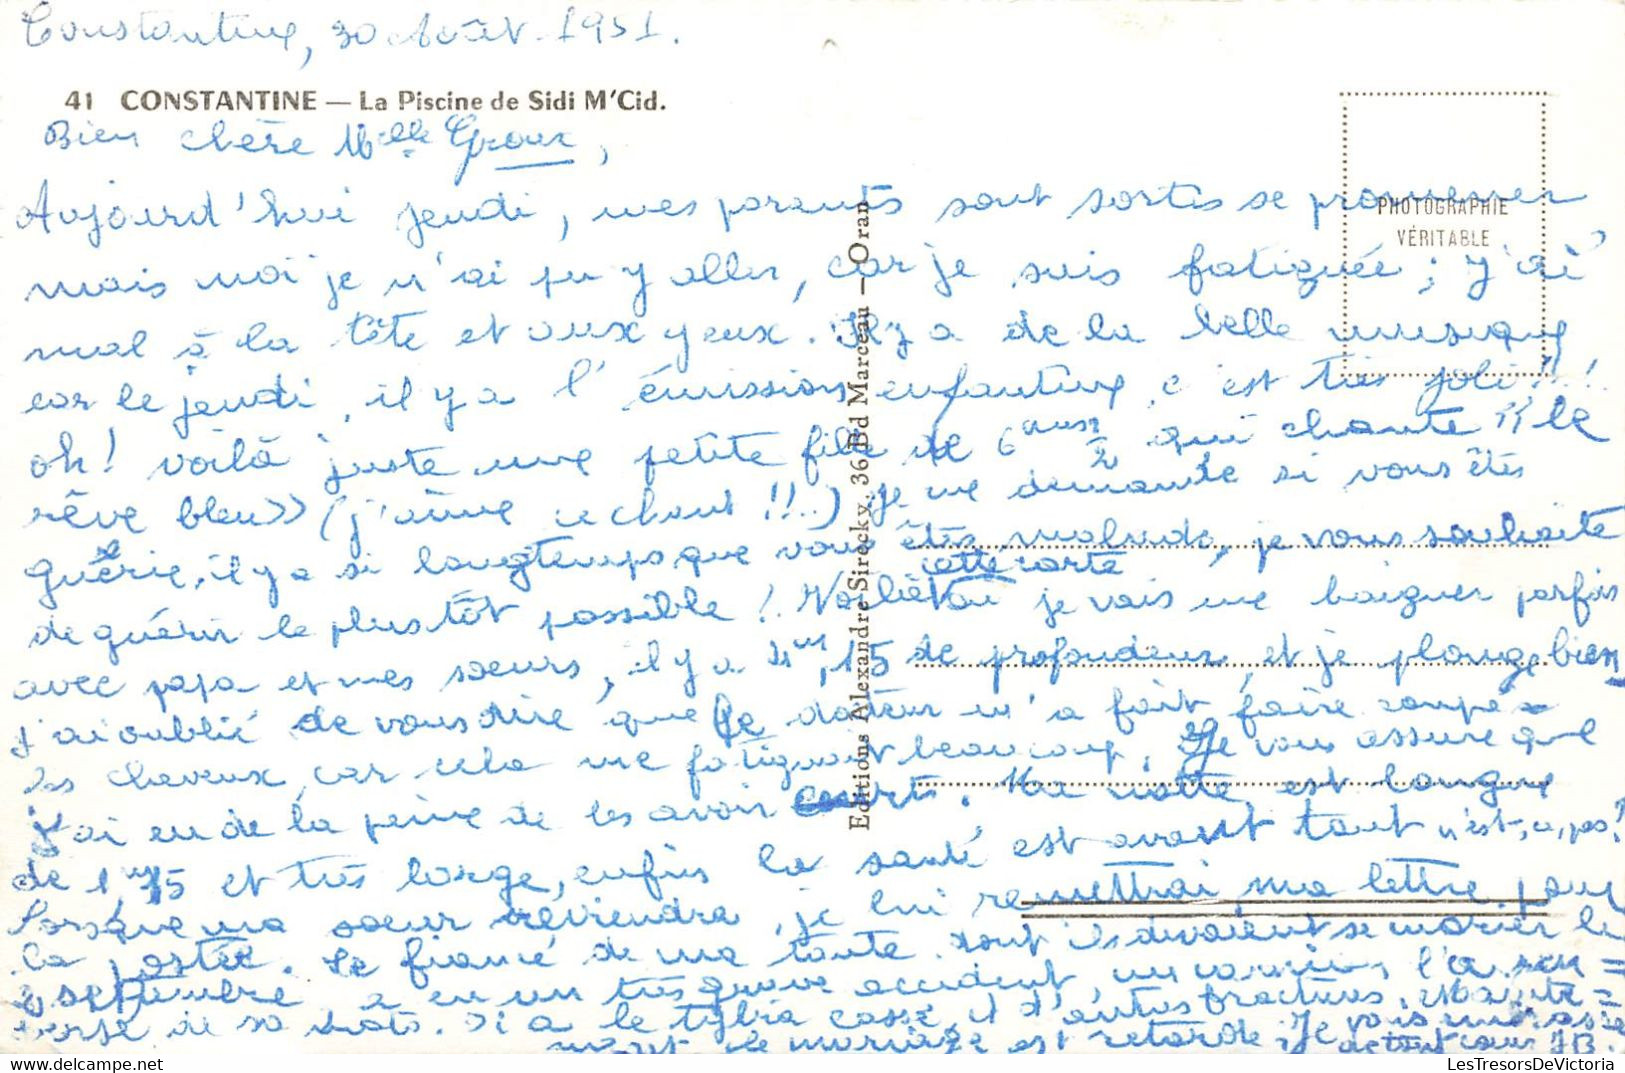 Constantine, 30 Août 1951.
41 CONSTANTINE — La Piscine de Sidi M'Cid.
Bien chère Melle Groux,
PHOTOGRAPHIE
VÉRITABLE
Aujourd'hui jeudi, mes parents sont sortis se promener
mais moi je n'ai pu y aller, car je suis fatiguée ; j'ai
mal à la tête et aux yeux. Il y a de la belle musique
car le jeudi, il y a l'émission enfantine, c'est très joli !!.!
oh! voilà juste une petite fille de 6 ans ½ qui chante "le
rêve bleu» (j'aime ce chant !!..) Je me demande si vous êtes
guérie, il y a si longtemps que vous êtes malade, je vous souhaite
de guérir le plus tôt possible ! Voilà où je vais me baigner parfois
cette carte
avec papa et mes soeurs, il y a 4m,15 de profondeur et je plonge bien
j'ai oublié de vous dire que le docteur m'a fait faire coupé=
les cheveux, car cela me fatiguait beaucoup. Je vous assure que
j'ai eu de la peine de les avoir courts. Ma natte est longue
de 1m,15 et très large, enfin la santé est avant tout n'est-ce pas?
lorsque ma soeur reviendra, je lui remettrai ma lettre pour
la poster. Le fiancé de ma tante dont ils devaient se marier le
septembre, a eu un très grave accident, un camion l'a ren=
versé de sa moto. Il a le tybia cassé et d'autres fractures,
le mariage est retardé ; Je vous
de tout coeur JB.
Editions Alexandre Sirecky, 36 Bd Marceau — Oran
LesTresorsDeVictoria.com